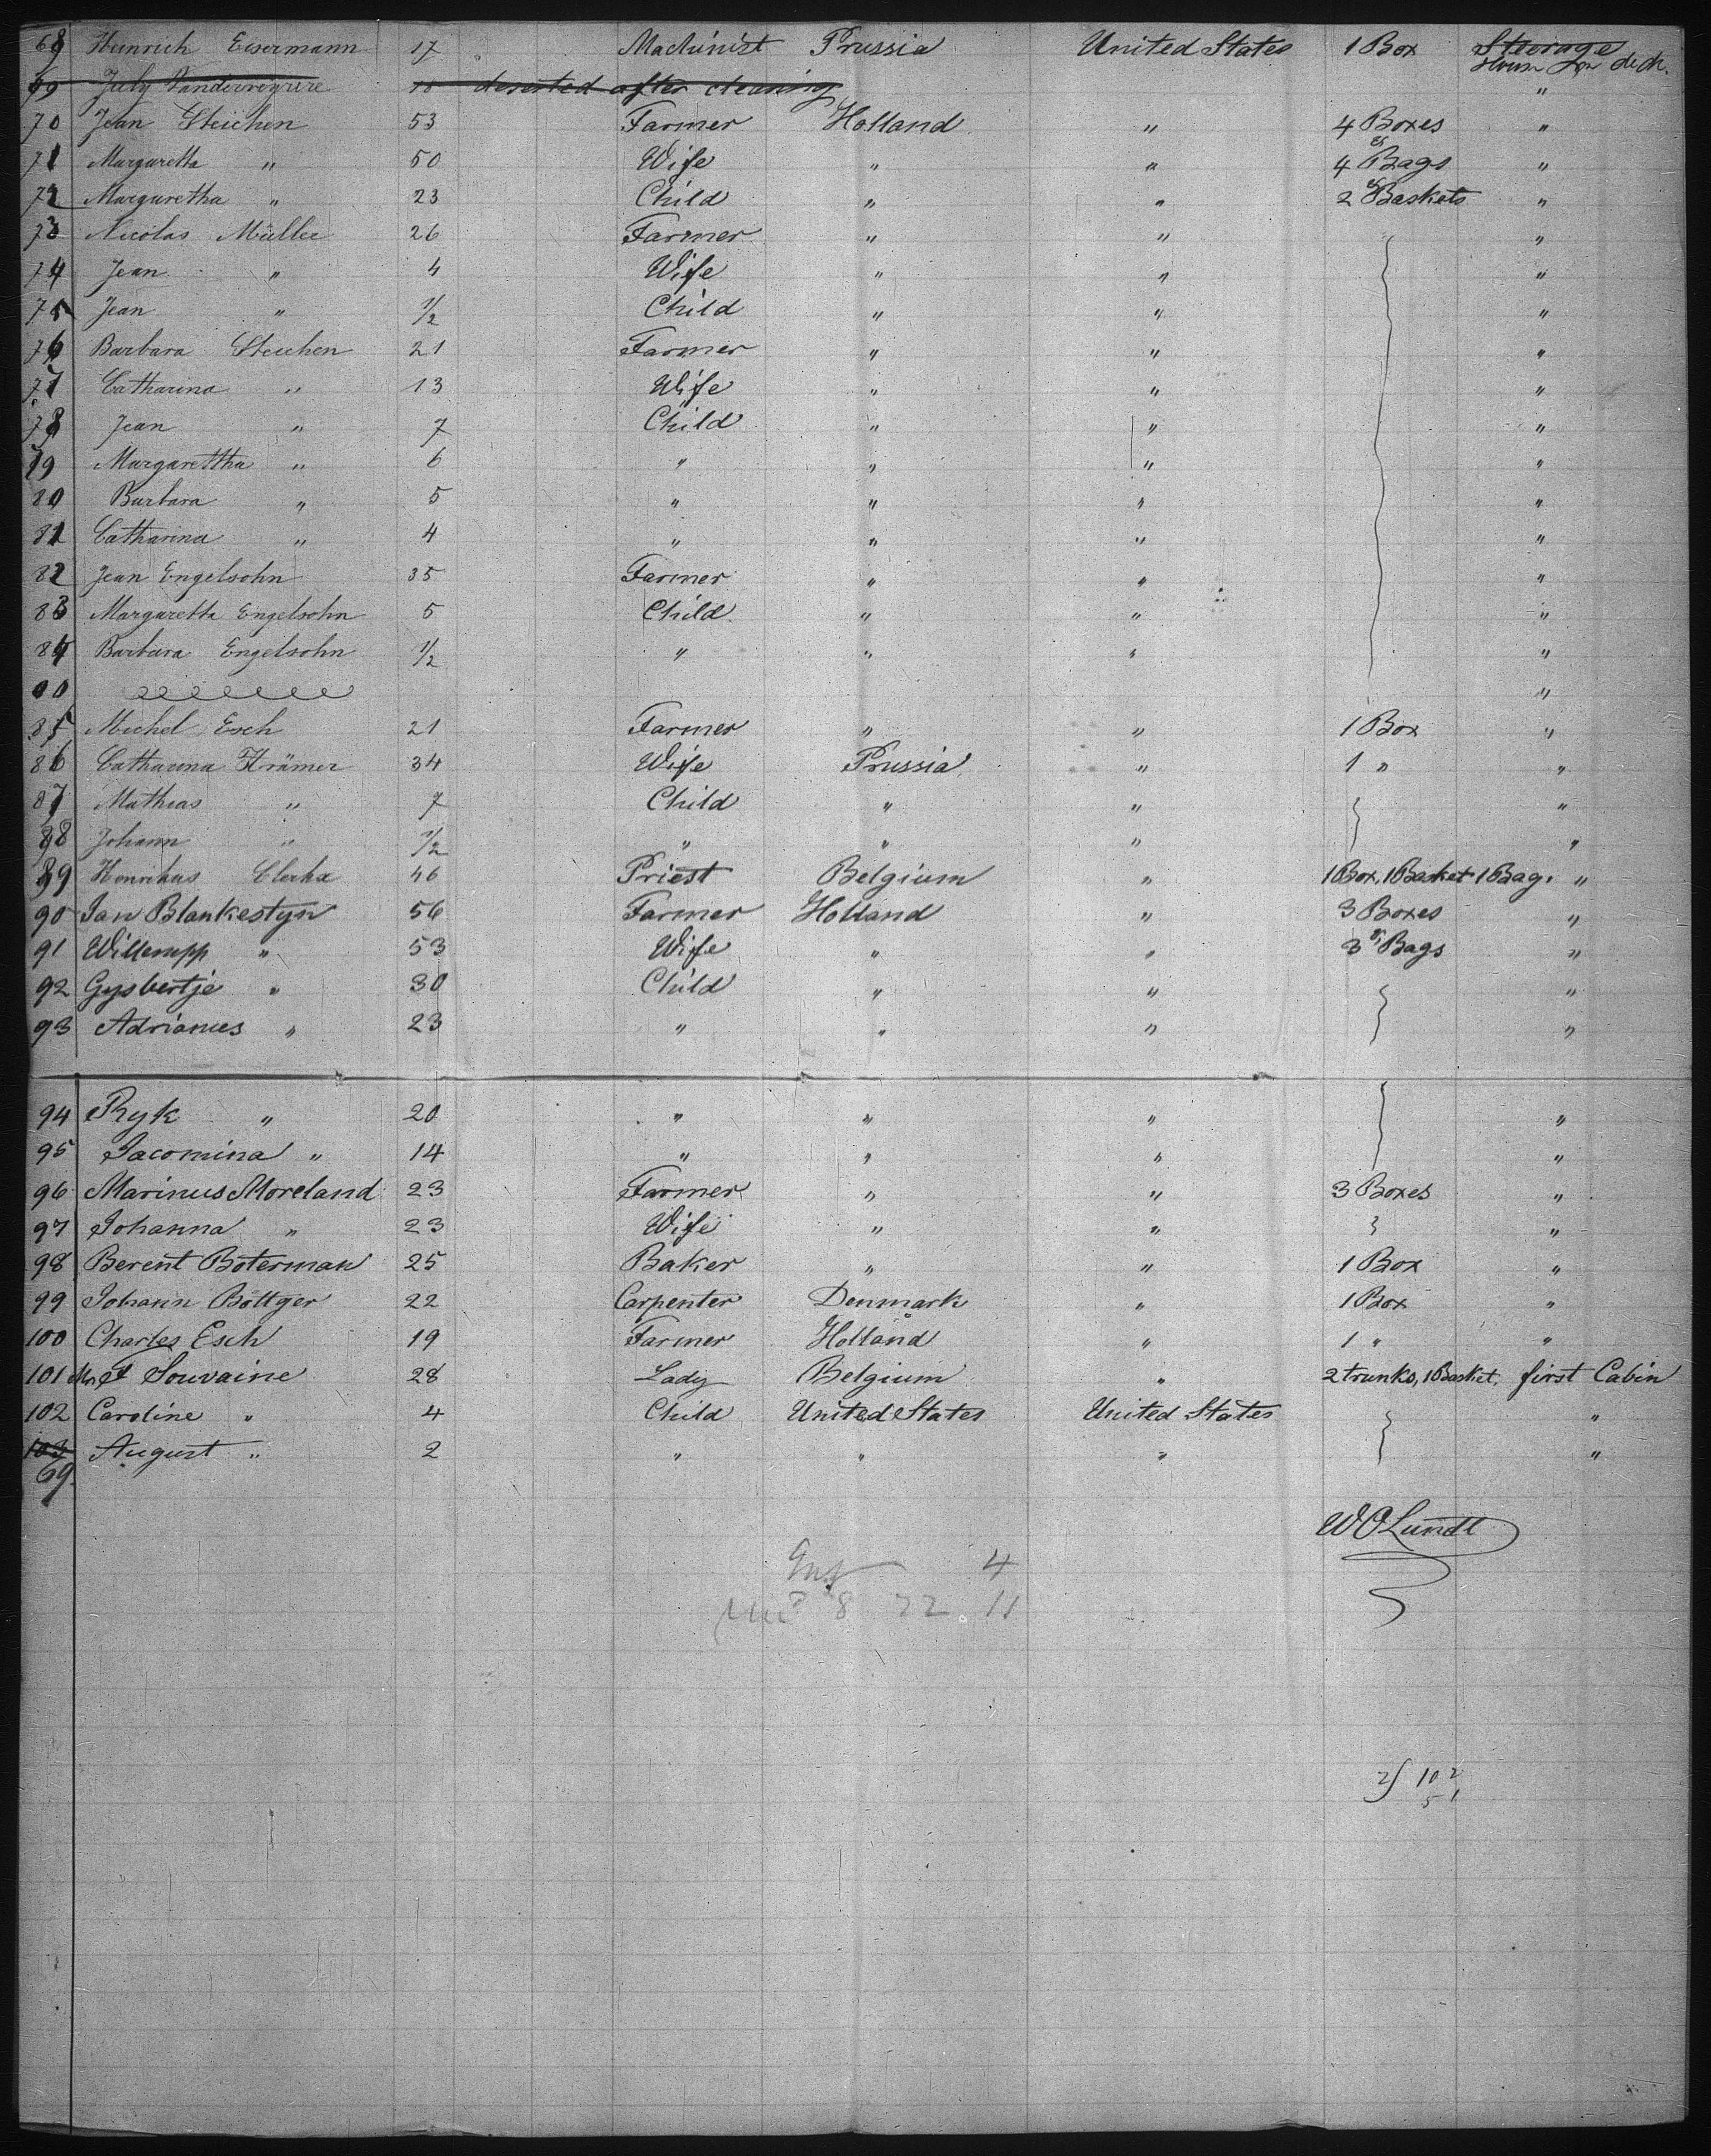 68 Heinrich Eisermann 17 " Machinist Prussia United States 1 Box Steerage
House on deck.
69 July 18 deserted after clearing "
70 Jean Steichen 53 Farmer Holland " 4 Boxes "
71 Margaretta " 50 Wife " " 4 & Bags "
72 Margaretha " 23 Child " " 2 & Baskets "
73 Nicolas Müller 26 Farmer " " "
74 Jean " 4 Wife " " "
75 Jean " 1/2 Child " " "
76 Barbara Steichen 21 Farmer " " "
77 Catharina " 13 Wife " " "
78 Jean " 7 Child " " "
79 Margarettha " 6 " " " "
80 Barbara " 5 " " " "
81 Catharina " 4 " " " "
82 Jean Engelsohn 35 Farmer " " "
83 Margaretta Engelsohn 5 Child " " "
84 Barbara Engelsohn 1/2 " " " "
00 "
85 Michel Esch 21 Farmer " " 1 Box "
86 Catharina Krämer 34 Wife Prussia " 1 " "
87 Mathias " 7 Child " " "
88 Johann " 1/2 " " " "
89 Henrikus 46 Priest Belgium " 1 Box, 1 Basket 1 Bag. "
90 Jan Blankestyn 56 Farmer Holland " 3 Boxes "
91 Willempp " 53 Wife " " 3 & Bags "
92 Gysbertje " 30 Child " " "
93 Adrianus " 23 " " " "
94 Ryk " 20 " " " "
95 Jacomina " 14 " " " "
96 Marinus Moreland 23 Farmer " " 3 Boxes "
97 Johanna " 23 Wife " " "
98 Berent Boterman 25 Baker " " 1 Box "
99 Johann Böttger 22 Carpenter Denmark " 1 Box "
100 Charles Esch 19 Farmer Holland " 1 " "
101 Mrs F Souvaine 28 Lady Belgium " 2 trunks, 1 Basket. first Cabin
102 Caroline " 4 Child United States United States "
103 August " 2 " " " "
69.
W O Lundt
4
8 22 11
2) 102
51